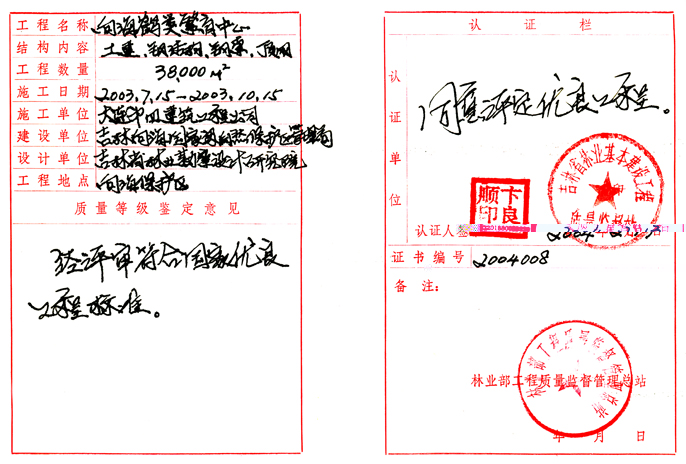 工程名称 向海鹤类繁育中心
结构内容 土建、钢结构、钢梁、顶网
工程数量 38,000m²
施工日期 2003.7.15—2003.10.15
施工单位 建筑工程公司
建设单位 吉林向海国家级自然保护区管理局
设计单位 吉林省林业勘察设计研究院
工程地点 向海保护区
质量等级鉴定意见
经评审符合国家优良
工程标准。
认证栏
认证单位
同意评定优良工程。
吉林省林业基本建设工程
卞良
顺印
认证人签
证书编号 2004008
备注：
林业部工程质量监督管理总站
年 月 日